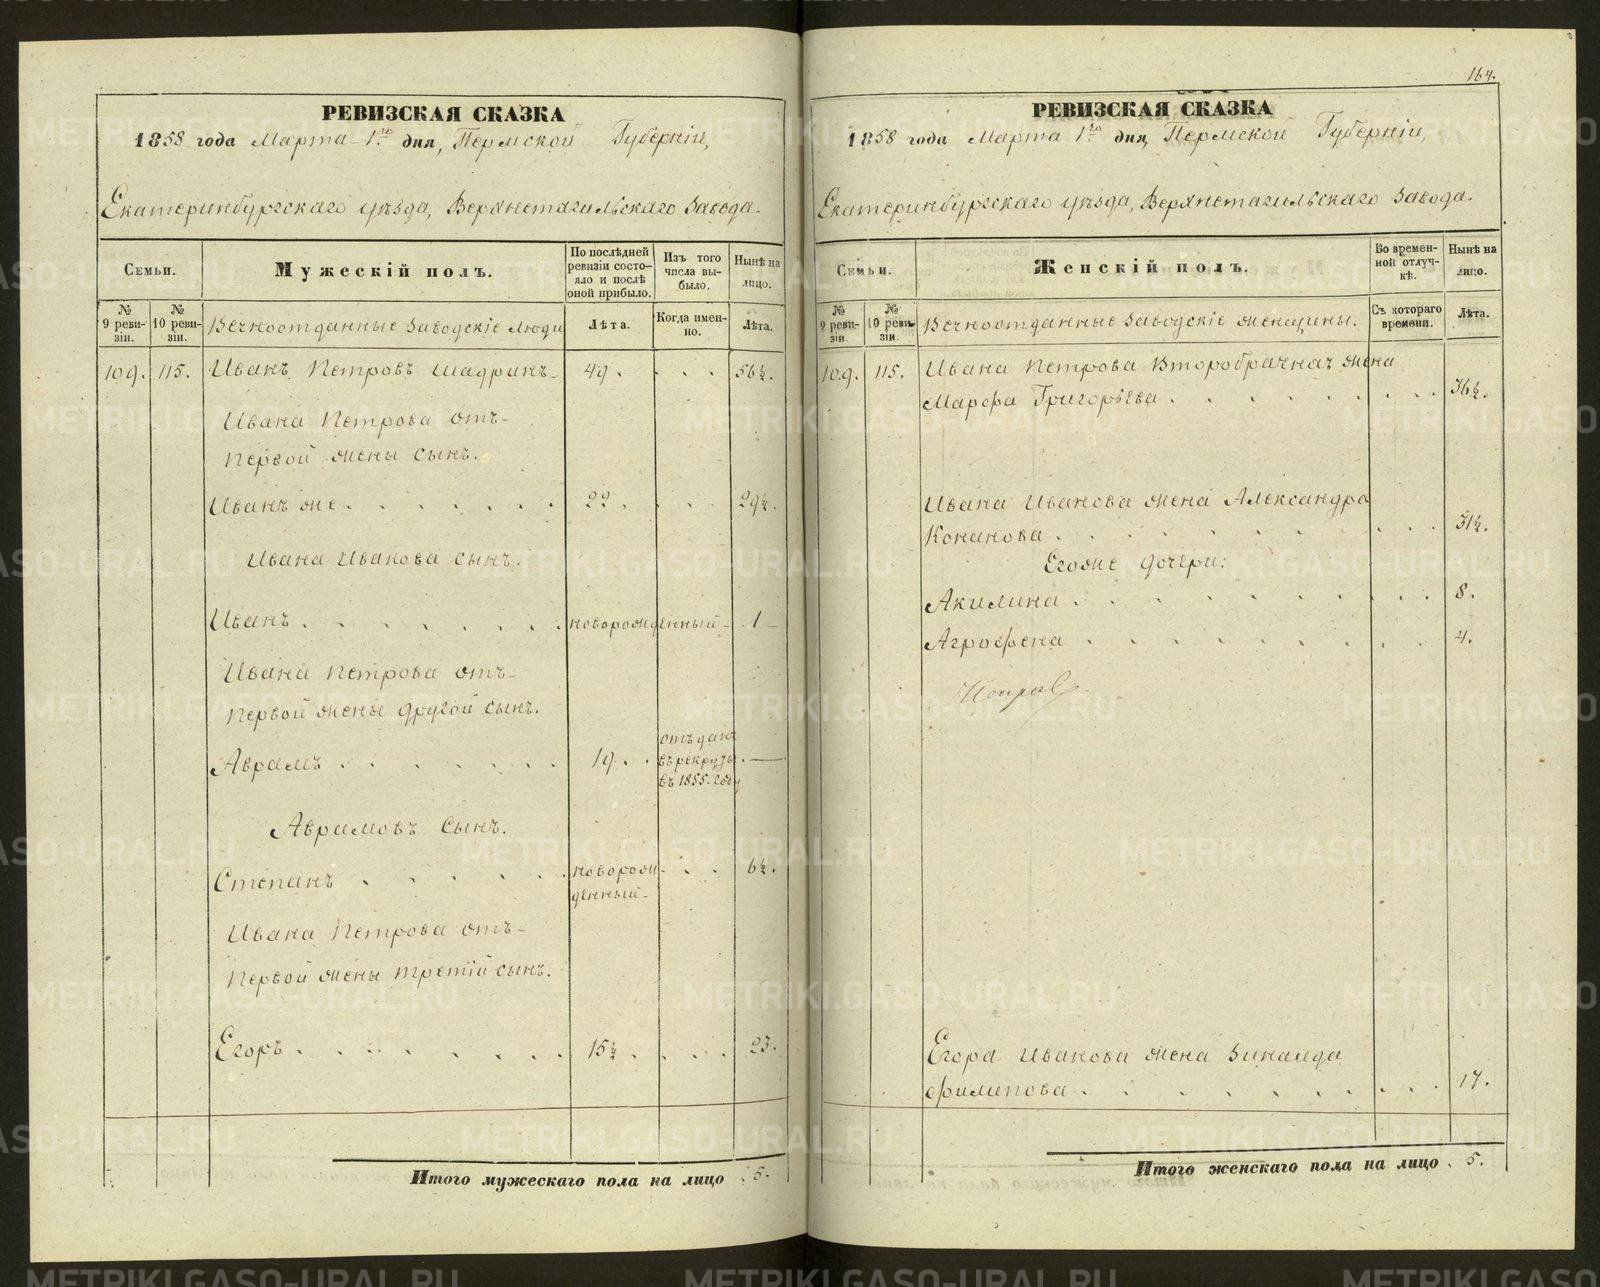 РЕВИЗСКАЯ СКАЗКА
1858 года Марта 1го дня, Пермской Губерніи,
Екатеринбургскаго уѣзда, Верхнетагильскаго Завода.
Семьи.
Мужескій полъ.
По послѣдней ревизіи состояло и послѣ оной прибыло.
Изъ того числа выбыло.
Нынѣ на лицо.
№ 9 ревизіи.
№ 10 ревизіи.
Вечноотданные Заводскіе Люди
Лѣта.
Когда именно.
Лѣта.
109. 115. Иванъ Петровъ Шадринъ 49. . . . 56½.
Ивана Петрова отъ
первой жены сынъ.
Иванъ же . . . . . . . 22. . . . 29½.
Ивана Иванова сынъ.
Иванъ . . . . . . . . новорожденный 1
Ивана Петрова отъ
первой жены другой сынъ.
Аврамъ . . . . . . . 19. . отъданъ въ рекруты въ 1855 году —
Аврамовъ сынъ.
Степанъ . . . . . новорожденный . . . 6½.
Ивана Петрова отъ
первой жены третій сынъ.
Егоръ . . . . . . . 15½. . . . 23.
Итого мужескаго пола на лицо . 5.
164.
РЕВИЗСКАЯ СКАЗКА
1858 года Марта 1го дня, Пермской Губерніи,
Екатеринбургскаго уѣзда, Верхнетагильскаго Завода.
Семьи.
Женскій полъ.
Во временной отлучкѣ.
Нынѣ на лицо.
№ 9 ревизіи.
№ 10 ревизіи.
Вечноотданные Заводскіе женщины.
Съ котораго времени.
Лѣта.
109. 115. Ивана Петрова второбрачная жена
Марфа Григорьева . . . . . . . . . 36½.
Ивана Иванова жена Александра
Кононова . . . . . . . . . 31½.
Егоже дочери:
Акилина . . . . . . . . . . 8.
Аграфена . . . . . . . . . 4.
Егора Иванова жена Зинаида
Филипова . . . . . . . . . 17.
Итого женскаго пола на лицо . 5.
METRIKI.GASO-URAL.RU